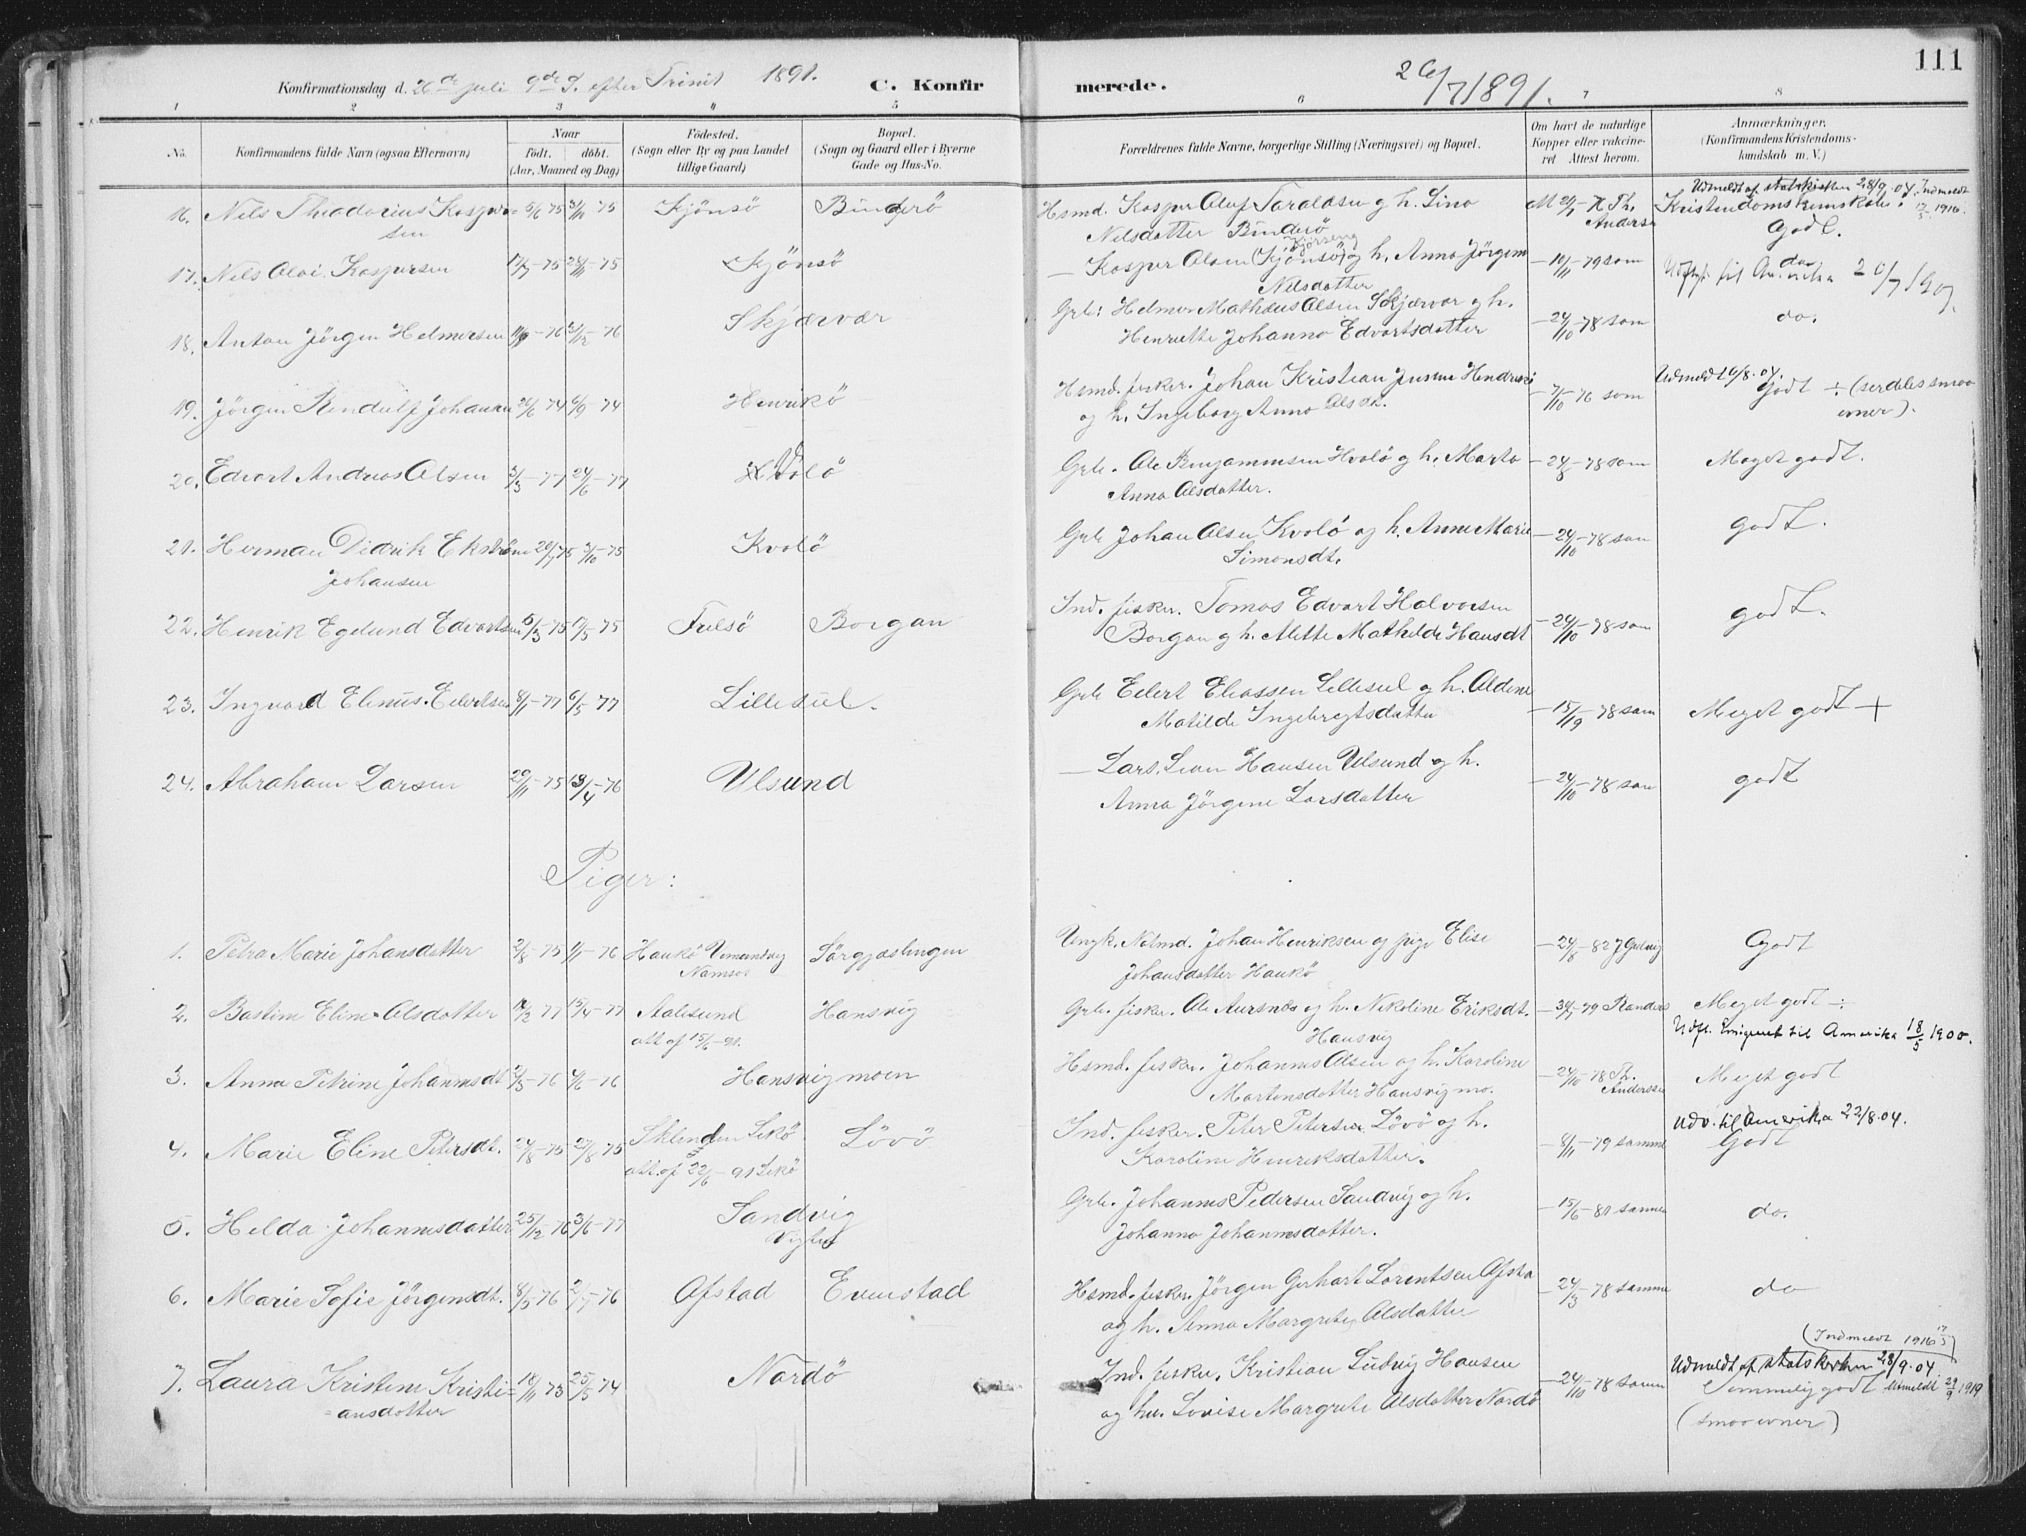 111
Konfirmationsdag d. 26de juli 9de S. efter Trinit 1891. C. Konfirmerede. 26/7 1891.
1 2 3 4 5 6 7 8
No. Konfirmandens fulde Navn (ogsaa Efternavn) Naar født, døbt. (Aar, Maaned og Dag) Födested. (Sogn eller By og paa Landet tillige Gaard) Bopæl. (Sogn og Gaard eller i Byerne Gade og Hus-No. Forældrenes fulde Navne, borgerlige Stilling (Næringsvei) og Bopæl. Om havt de naturlige Kopper eller vaccineret Attest herom. Anmærkninger. (Konfirmandens Kristendomskundskab m. V.)
Udmeldt af statskirken 28/9.04. Indmeldt 17/5 1916.
16. Nels Theodorius Kaspersen 5/6 75 3/10 75 Kjönsö Binderö Hsmd. Kasper Olaf Taraldsen og h. Lina Nelsdatter Binderö Th. Anderse Kristendomskundskab: Godt.
17. Nels Oloi Kaspersen 17/7-75 28/11-75 Kjönsö Kasper Olsen (Kjönsö) og h. Anna Jörgine Nelsdatter 10/11-79 som do. Udflyt. til Amerika 20/7 1907.
18. Anton Jörgen Helmersen 76 76 Skjærvær Grb: Helmer Mathæus Olsen Skjærvær og h. Henriette Johanna Edvartsdatter 24/10-78 som do.
19. Jörgen Rendulf Johansen 26/6 74 6/9-74 Henrikö Hsmd. fisker. Johan Kristian og h. Ingeborg Anna Olsdt. 7/10-76 som Udmeldt 16/8.04. Godt ÷ (serdeles smaa evner).
20. Edvart Andreas Olsen 3/3-77 24/6-77 Hvolö Grb. Ole Benjaminsen Hvolö og h. Marta Anna Olsdatter. 24/8-78 som Meget godt.
21. Herman Didrik Ekström Johansen 20/7 75 3/10-75 Kvolö Grb Johan Olsen Kvolö og h. Anne Marie Simonsdt. 24/10-78 som godt.
22. Henrik Egelund Edvartsen 5/3-75 17/5-75 Fulsö Borgan Ind. fisker. Tomas Edvart Halvorsen Borgan og h. Alette Mathilde Hansdt 24/10-78 som godt.
23. Ingvard Elinus Eilertsen 8/1-77 6/5-77 Lillesul. Grb Eilert Eliassen Lillesul og h. Aldene Matilde Ingebregtsdatter 15/19-78 som Meget godt +
24. Abraham Larsen 29/11-75 18/4-76 Ulsund Lars Hansen Ulsund og h. Anna Jörgine Larsdatter 24/10-78 som godt
Piger:
1. Petra Marie Johansdatter 2/8-75 1/1-76 Haukö Vemundvig Namsos Sörgjæslingen Ungk. Johan Henriksen og pige Elise Johansdatter Haukö 24/8-82 Godt
2. Bastine Eline Olsdatter 12/2 77 15/4-77 Aalesund att af 15/6-91. Hansvig Grb. fisker. Ole Aursnes og h. Nikoline Eriksdt. Hansvig 79 Randers Meget godt ÷ Udfl. Emigreret til Amerika 18/5 1900.
3. Anna Petrine Johannesdt 2/5-76 4/6-76 Hansvigmoen Hsmd. fisker. Johannes Olsen og h. Karoline Martensdatter Hansvigmo. 24/10-78 Th. Anderssen Meget godt
4. Marie Eline Petersdt. 24/8-75 29/8 75 Sklinden Lekö att. af 22/6-91 Lekö Lövö Ind. fisker. Peter Petersen Lövö og h. Karoline Henriksdatter. 8/11-79 samme Udv. til Amerika 22/8.04. Godt
5. Helda Johannesdatter 25/12-76 3/6-77 Sandvig Grb. Johannes Pedersen Sandvig og h. Johanna Johannesdatter. 15/6-80 samme do.
6. Marie Sofie Jörgensdt. 8/5 76 2/7-76 Ofstad Evenstad Hsmd. fisker. Jörgen Gerhart Lorentsen Ofsta og h. Anna Margrete Olsdatter 24/3-78 samme do
7. Laura Kristine Kristiansdatter 18/11 73 25/5 74 Nordö Ind. fisker. Kristian Ludvig Hansen og hu. Lovise Margrete Olsdatter Nordö 24/10-78 samm (Indmeldt 1916 17/5) Udmeldt af statskirken 28/9.04 Temmelig godt Utmeldt 29/9 1919 (smaa evner)